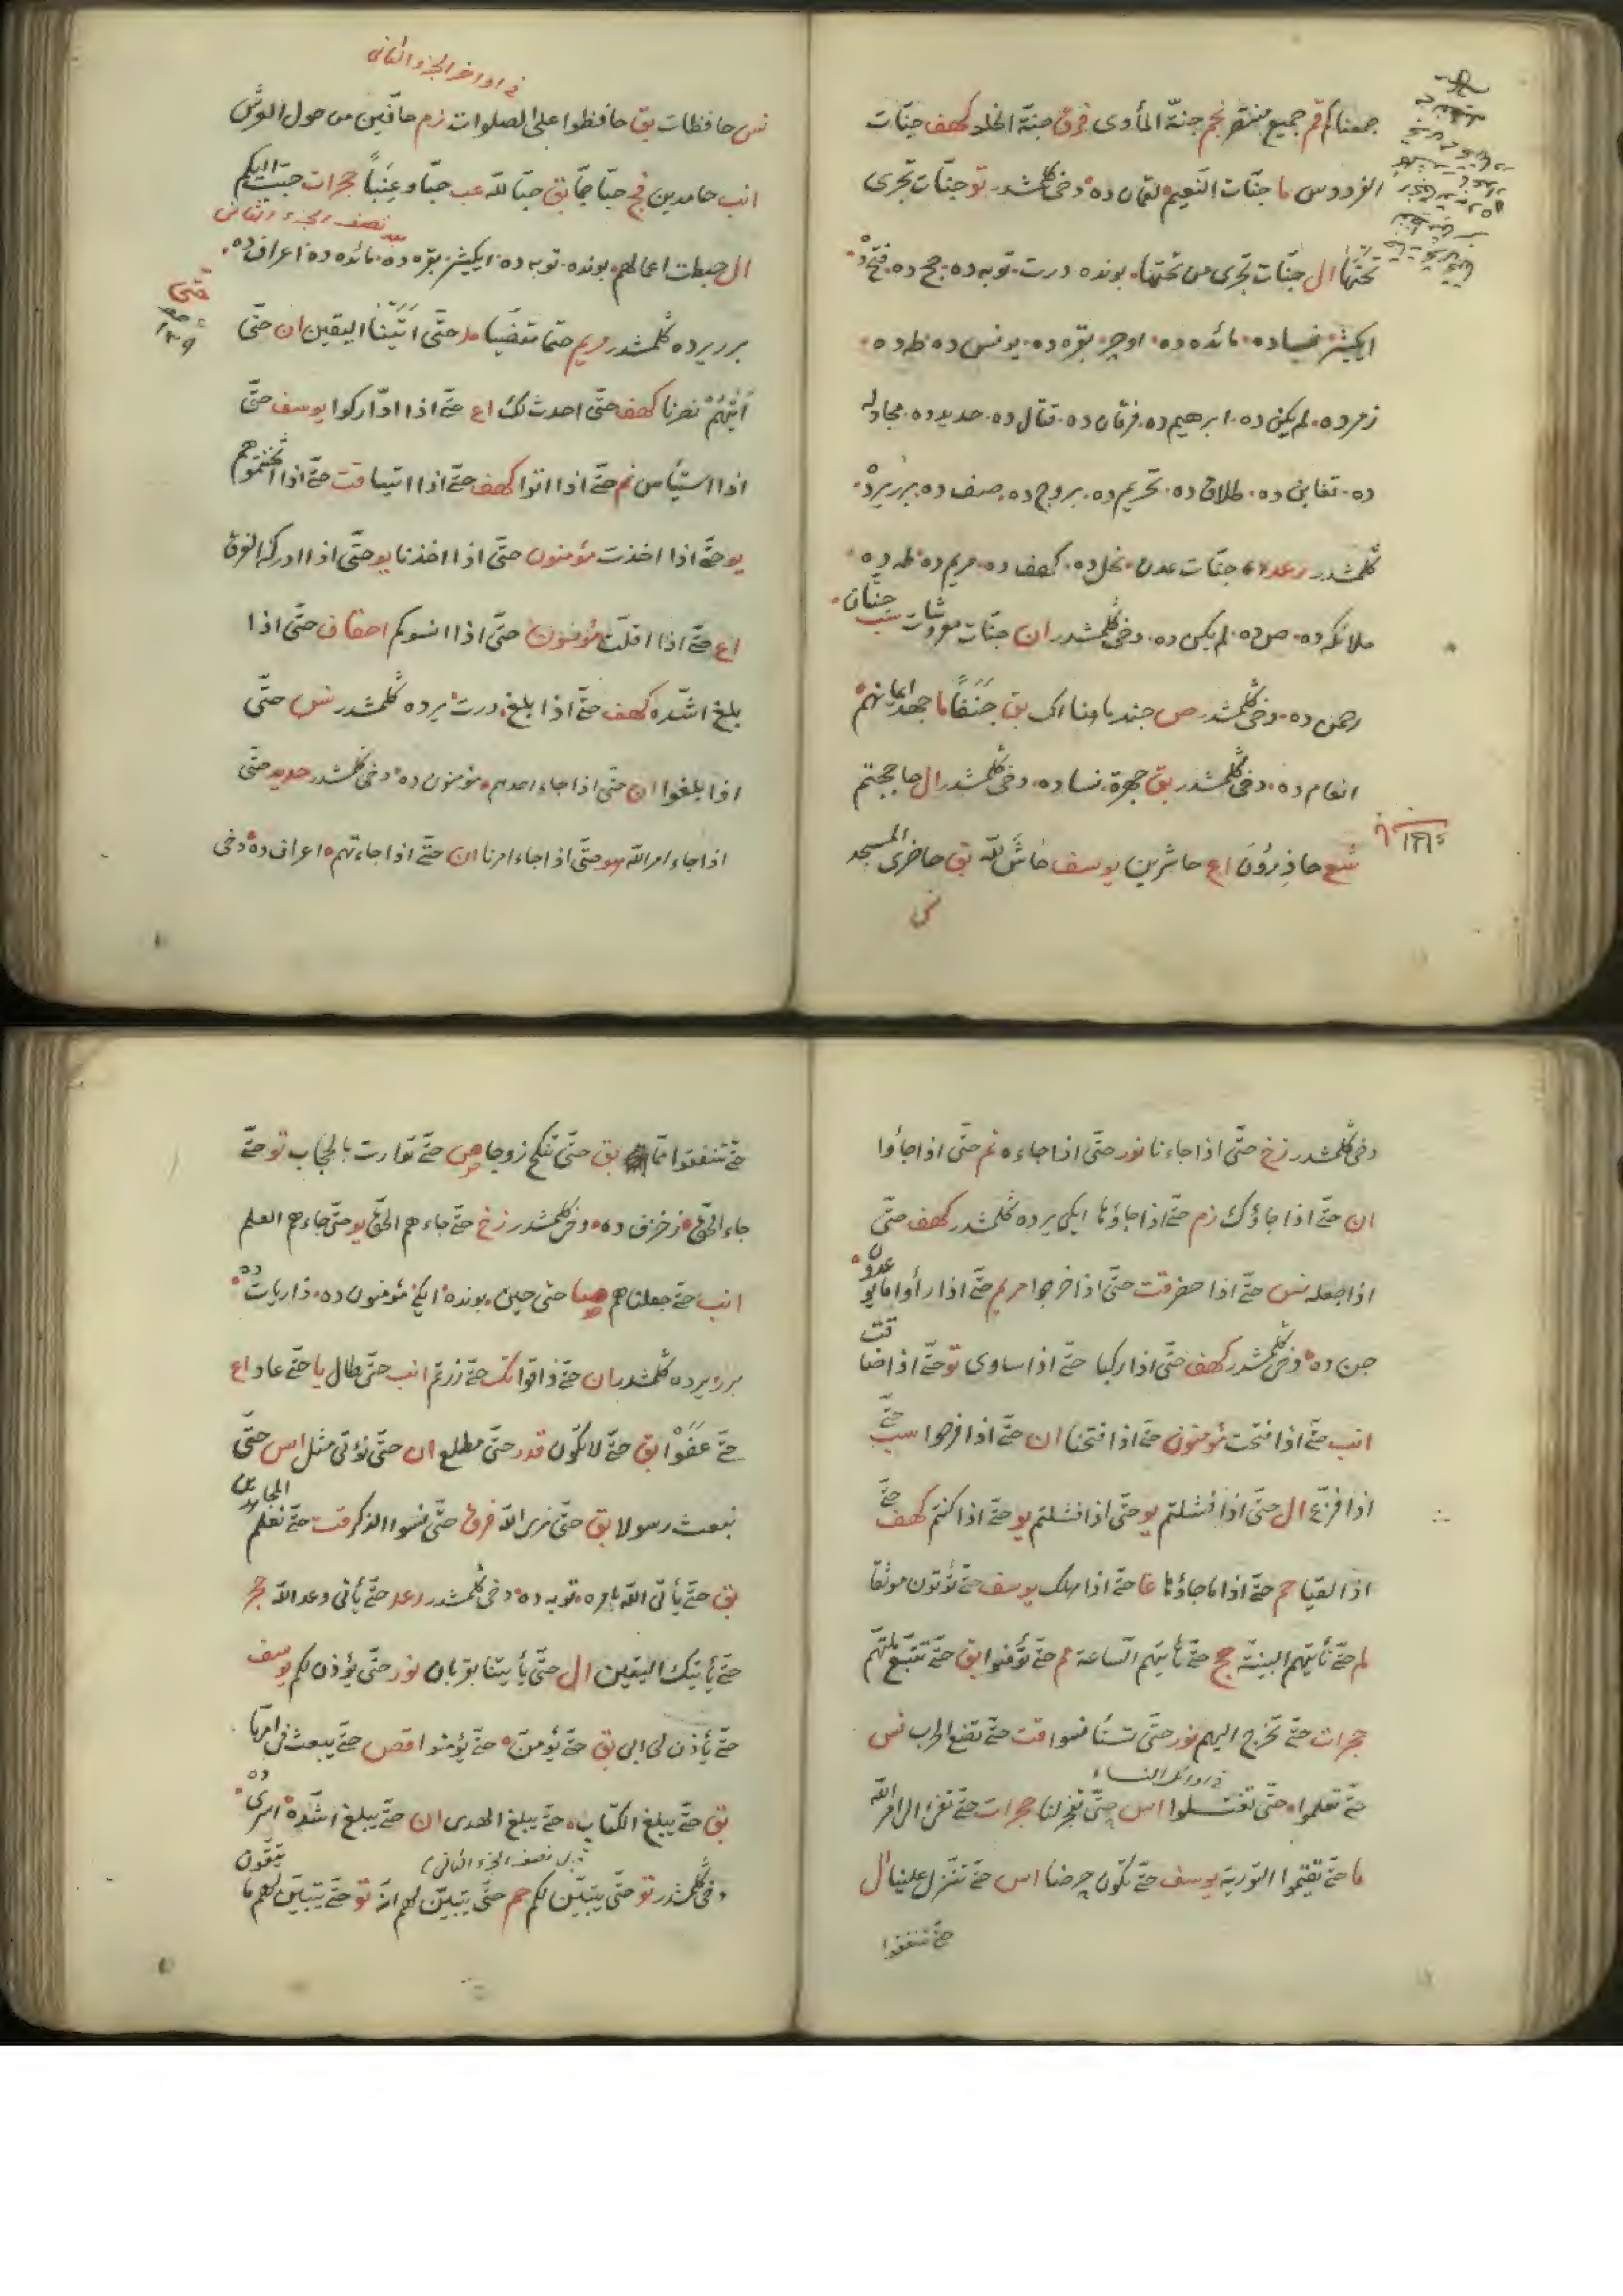 جمعناكم قم جميع منتصر نجم جنّة المأوى فرق جنة الخلد كهف جنّات
الفردوس ما جنّات النّعيم لقمان ده دخى كلمشدر تو جنّات تجرى
تحتها ال جنّات تجرى من تحتها بونده درت توبه ده حج ده فتح ده
ايكيشر نساده مائده ده اوچر بقره ده يونس ده طه ده
زمر ده لم يكن ده ابرهيم ده فرقان ده قتال ده حديد ده مجادله
ده تغابن ده طلاق ده تحريم ده بروج ده صف ده برر يرده
كلمشدر رعد جنّات عدن نحل ده كهف ده مريم ده طه ده
ملائكه ده ص ده لم يكن ده دخى كلمشدر ان جنّات معروشات سب جنّتان
رحمن ده دخى كلمشدر ص جند ما هنالك بق جنفا ما جهد ايمانهم
انعام ده دخى كلمشدر بق جهرة نساده دخى كلمشدر ال حاججتم
شع حاذرون اع حاشرين يوسف حاش للّه بق حاضرى المسجد
نس
فى اواخر الجزء الثانى
نس حافظات بق حافظوا على الصلوات زم حافّين من حول العرش
انب حامدين فج حبّا جمّا بق حبّا للّه عب حبّا وعنباً حجرات حبّب اليكم
بعد نصف الجزء الثانى
ال حبطت اعمالهم بونده توبه ده ايكيشر بقره ده مائده ده اعراف ده
حتى
برر يرده كلمشدر مريم حتما مقضيّا مد حتّى اتينا اليقين ان حتّى
اتيهم نصرنا كهف حتّى احدث لك اع حتّى اذا ادّاركوا يوسف حتّى
اذا استيأس نم حتّى اذا اتوا كهف حتّى اذا اتيا قت حتّى اذا اثخنتموهم
يو حتّى اذا اخذت مؤمنون حتّى اذا اخذنا يو حتّى اذا ادركه الغرق
اع حتّى اذا اقلّت مؤمنون حتّى اذا انسوكم احقاف حتّى اذا
بلغ اشدّه كهف حتّى اذا بلغ درت يرده كلمشدر نس حتّى
اذا بلغوا ان حتّى اذا جاء احدهم مؤمنون ده دخى كلمشدر حديد حتّى
اذا جاء امر اللّه هو حتّى اذا جاء امرنا ان حتّى اذا جاءتهم اعراف ده دخى
دخى كلمشدر زخ حتّى اذا جاءنا نور حتّى اذا جاءه نم حتّى اذا جاؤا
ان حتّى اذا جاؤك زم حتّى اذا جاؤها ايكى يرده كلمشدر كهف حتّى
اذا جعله نس حتّى اذا حضر قت حتّى اذا خرجوا مريم حتّى اذا رأوا ما يوعدون
جن ده دخى كلمشدر كهف حتّى اذا ركبا حتّى اذا ساوى تو حتّى اذا ضاقت
انب حتّى اذا فتحت مؤمنون حتّى اذا فتحنا ان حتّى اذا فرحوا سب حتّى
اذا فزّع ال حتّى اذا فشلتم يو حتّى اذا فشلتم يو حتّى اذا كنتم كهف حتّى
اذا لقيا حم حتّى اذا ما جاؤها غا حتّى اذا هلك يوسف حتّى تؤتون موثقا
لم حتّى تأتيهم البيّنة حج حتّى تأتيهم السّاعة مم حتّى تؤمنوا بق حتّى تتّبع ملتهم
حجرات حتّى تخرج اليهم نور حتّى تستأنسوا قت حتّى تضع الحرب نس
فى اوائل النساء
حتّى تعلموا حتّى تغتسلوا اس حتّى تفجر لنا حجرات حتّى تفئ الى امر اللّه
ما حتّى تقيموا التورية يوسف حتّى تكون حرضا اس حتّى تنزل علينا ال
حتّى تنفقوا
حتّى تنفقوا ممّا بق حتّى تنكح زوجا ص حتّى توارت بالحجاب تو حتّى
جاء الحقّ زخرف ده دخى كلمشدر زخ حتّى جاءهم الحقّ يو حتّى جاءهم العلم
انب حتّى جعلناهم صا حتّى حين بونده ايكى مؤمنون ده ذاريات ده
برر يرده كلمشدر ان حتّى ذاقوا تك حتّى زرتم انب حتّى طال يا حتّى عاد اع
حتّى عفوا بق حتّى لا تكون قدر حتّى مطلع ان حتّى نؤتى مثل اس حتّى
نبعث رسولا بق حتّى نرى اللّه فرق حتّى نسوا الذكر قت حتّى نعلم المجاهدين
بق حتّى يأتى اللّه بامره توبه ده دخى كلمشدر رعد حتّى يأتى وعد اللّه حجر
حتّى يأتيك اليقين ال حتّى يأتينا بقربان نور حتّى يؤذن لكم يوسف
حتّى يأذن لى ابى بق حتّى يؤمنّ حتّى يؤمنوا قصص حتّى يبعث فى امّها
بق حتّى يبلغ الكتاب حتّى يبلغ الهدى ان حتّى يبلغ اشدّه اسرى ده
قبل نصف الجزء الثانى
دخى كلمشدر تو حتّى يتبيّن لكم حم حتّى يتبيّن لهم انّه تو حتّى يتبيّن لهم ما يتّقون